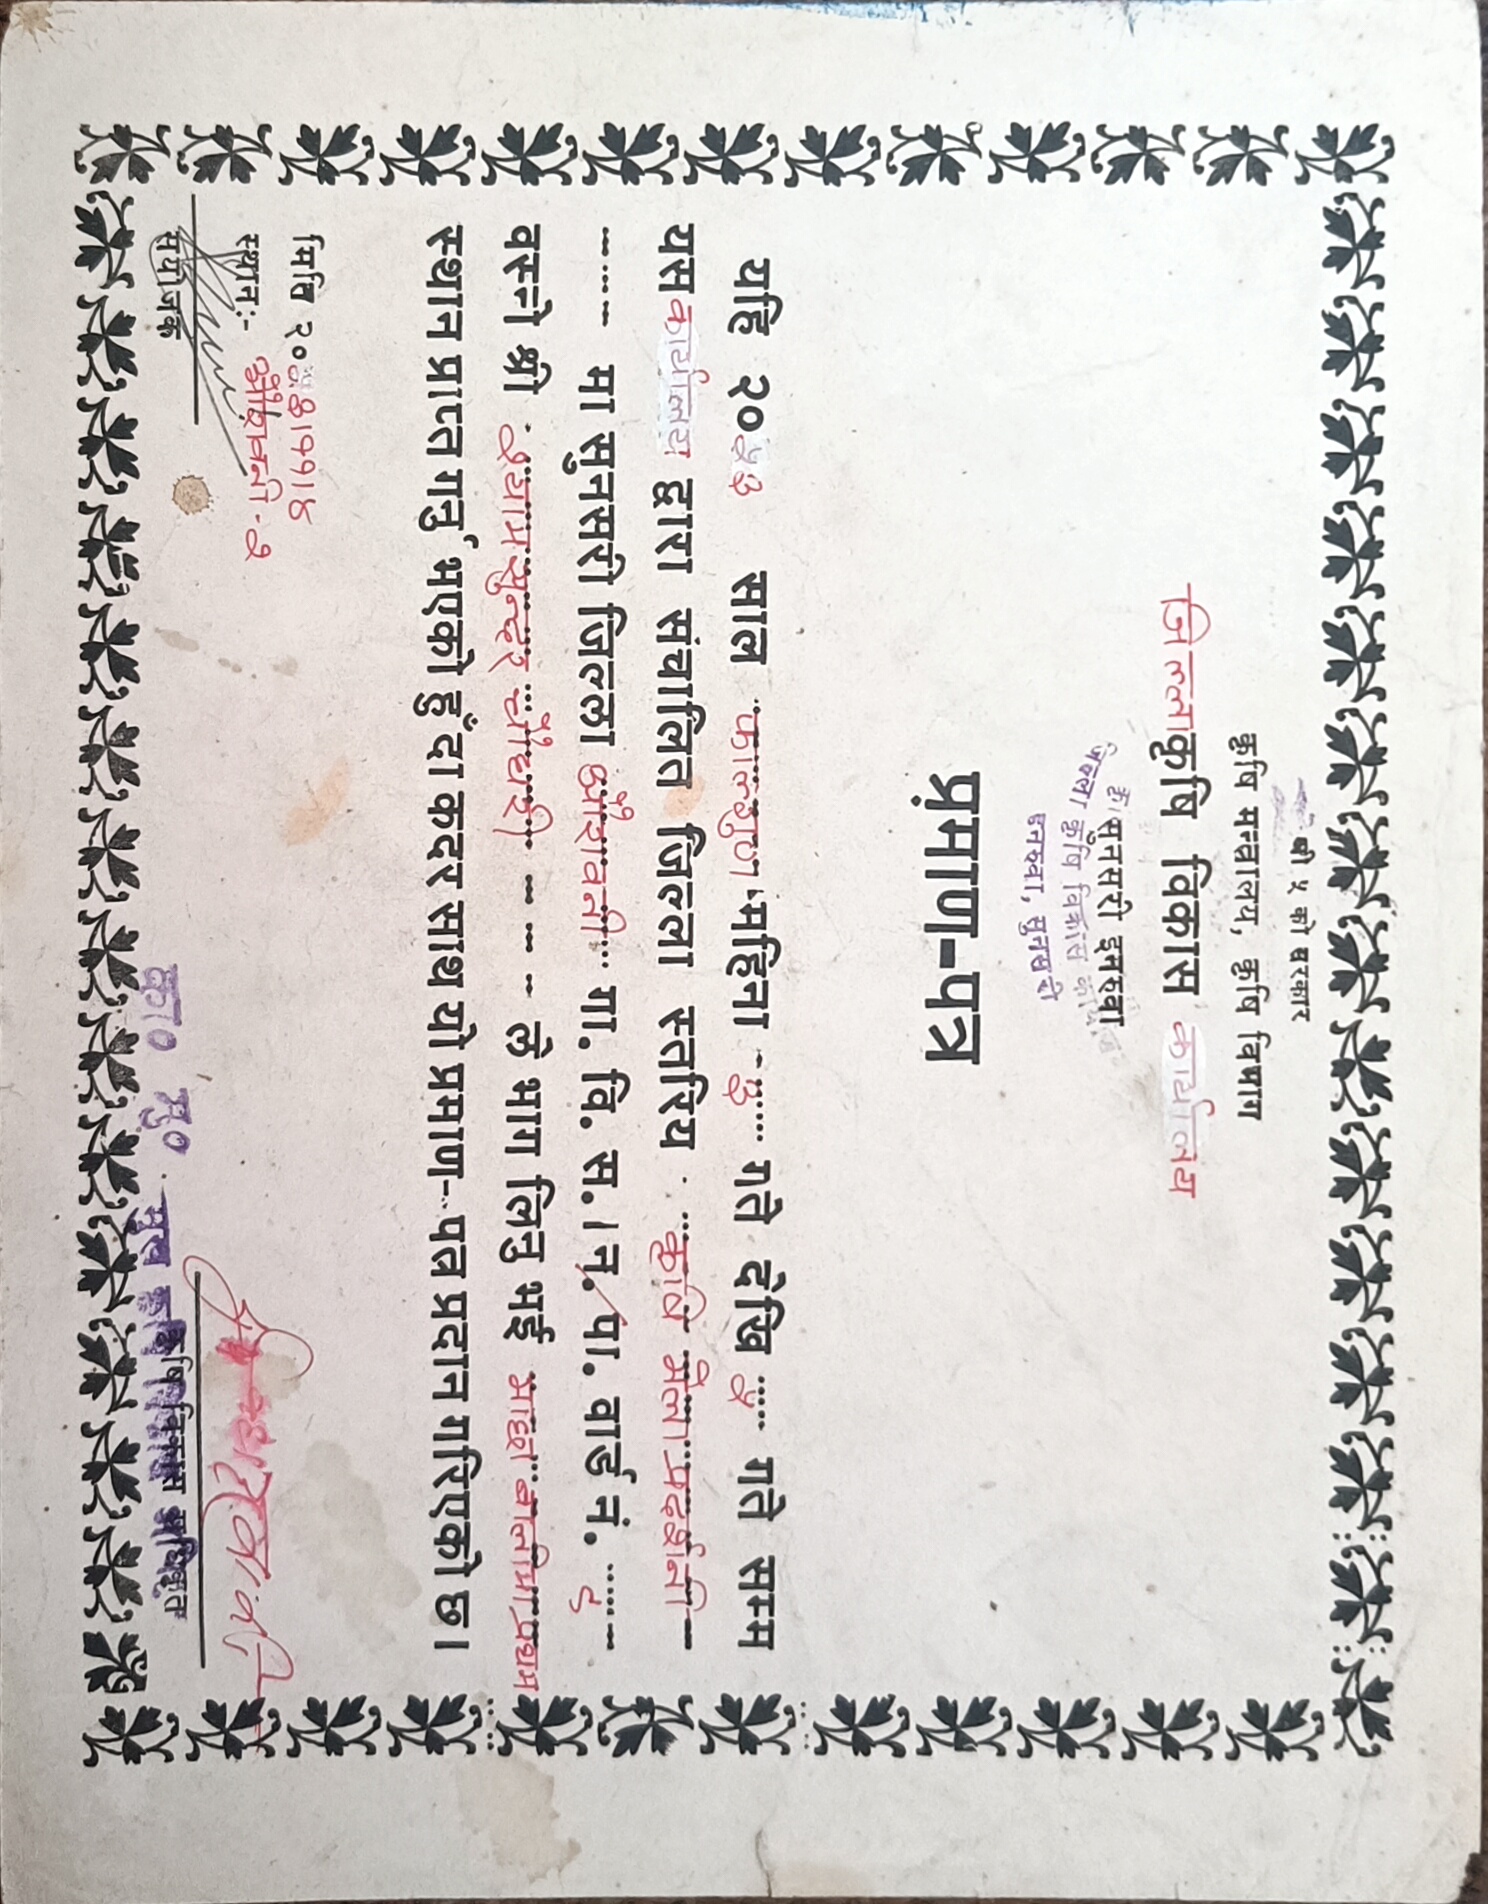 श्री ५ को सरकार
कृषि मन्त्रालय, कृषि विभाग
जिल्ला कृषि विकास कार्यालय
सुनसरी इनरुवा
जिल्ला कृषि विकास
इनरुवा, सुनसरी
प्रमाण-पत्र
यहि २०५३ साल फाल्गुण महिना ३ गते देखि ५ गते सम्म
यस कार्यालय द्वारा संचालित जिल्ला स्तरिय कृषि मेला प्रदर्शनी
मा सुनसरी जिल्ला औरावनी गा. वि. स. । न. पा. वार्ड नं. ८
वस्ने श्री श्यामसुन्दर चौधरी ले भाग लिनु भई माछा बालीमा प्रथम
स्थान प्राप्त गर्नु भएको हुँदा कदर साथ यो प्रमाण-पत्र प्रदान गरिएको छ।
मिति २०५३।११।४
स्थान:- औरावनी - २
संयोजक
कृषि विकास अधिकृत
का० मु०